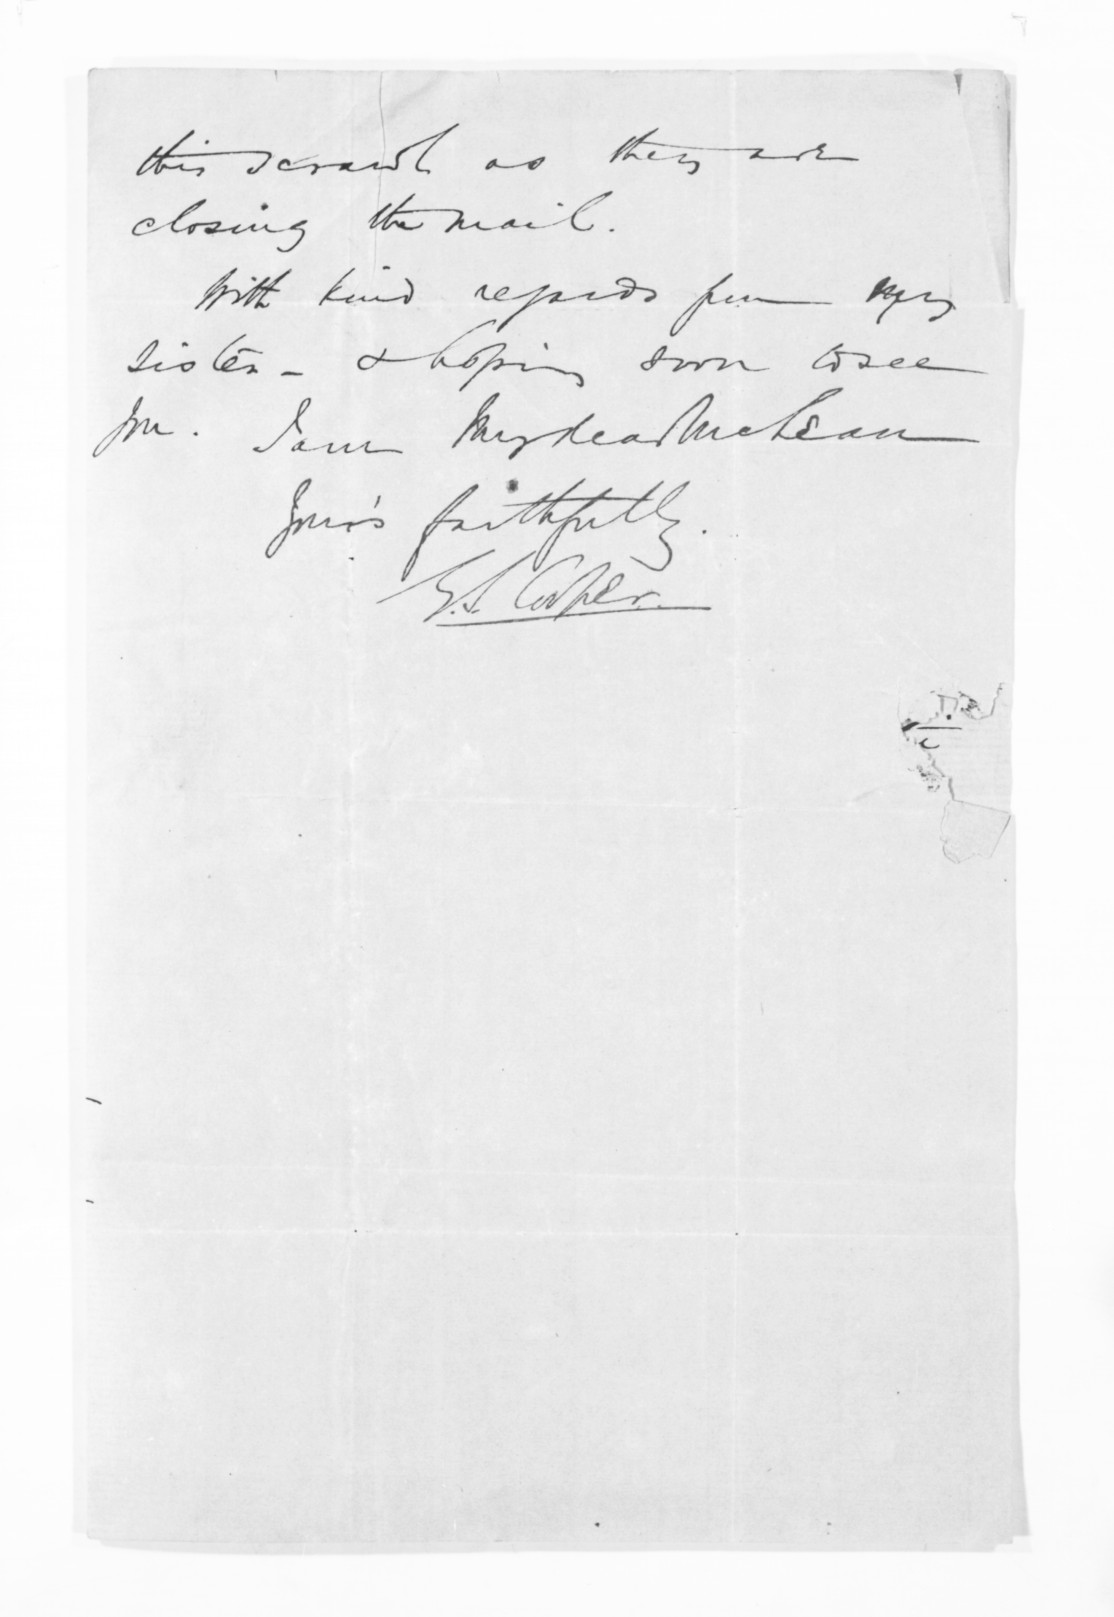 this scrawl as they are
closing the mail.
With kind regards from my
sister - & hoping soon to see
you. I am My dear McLean
Your's faithfully.
G.S. Cooper.